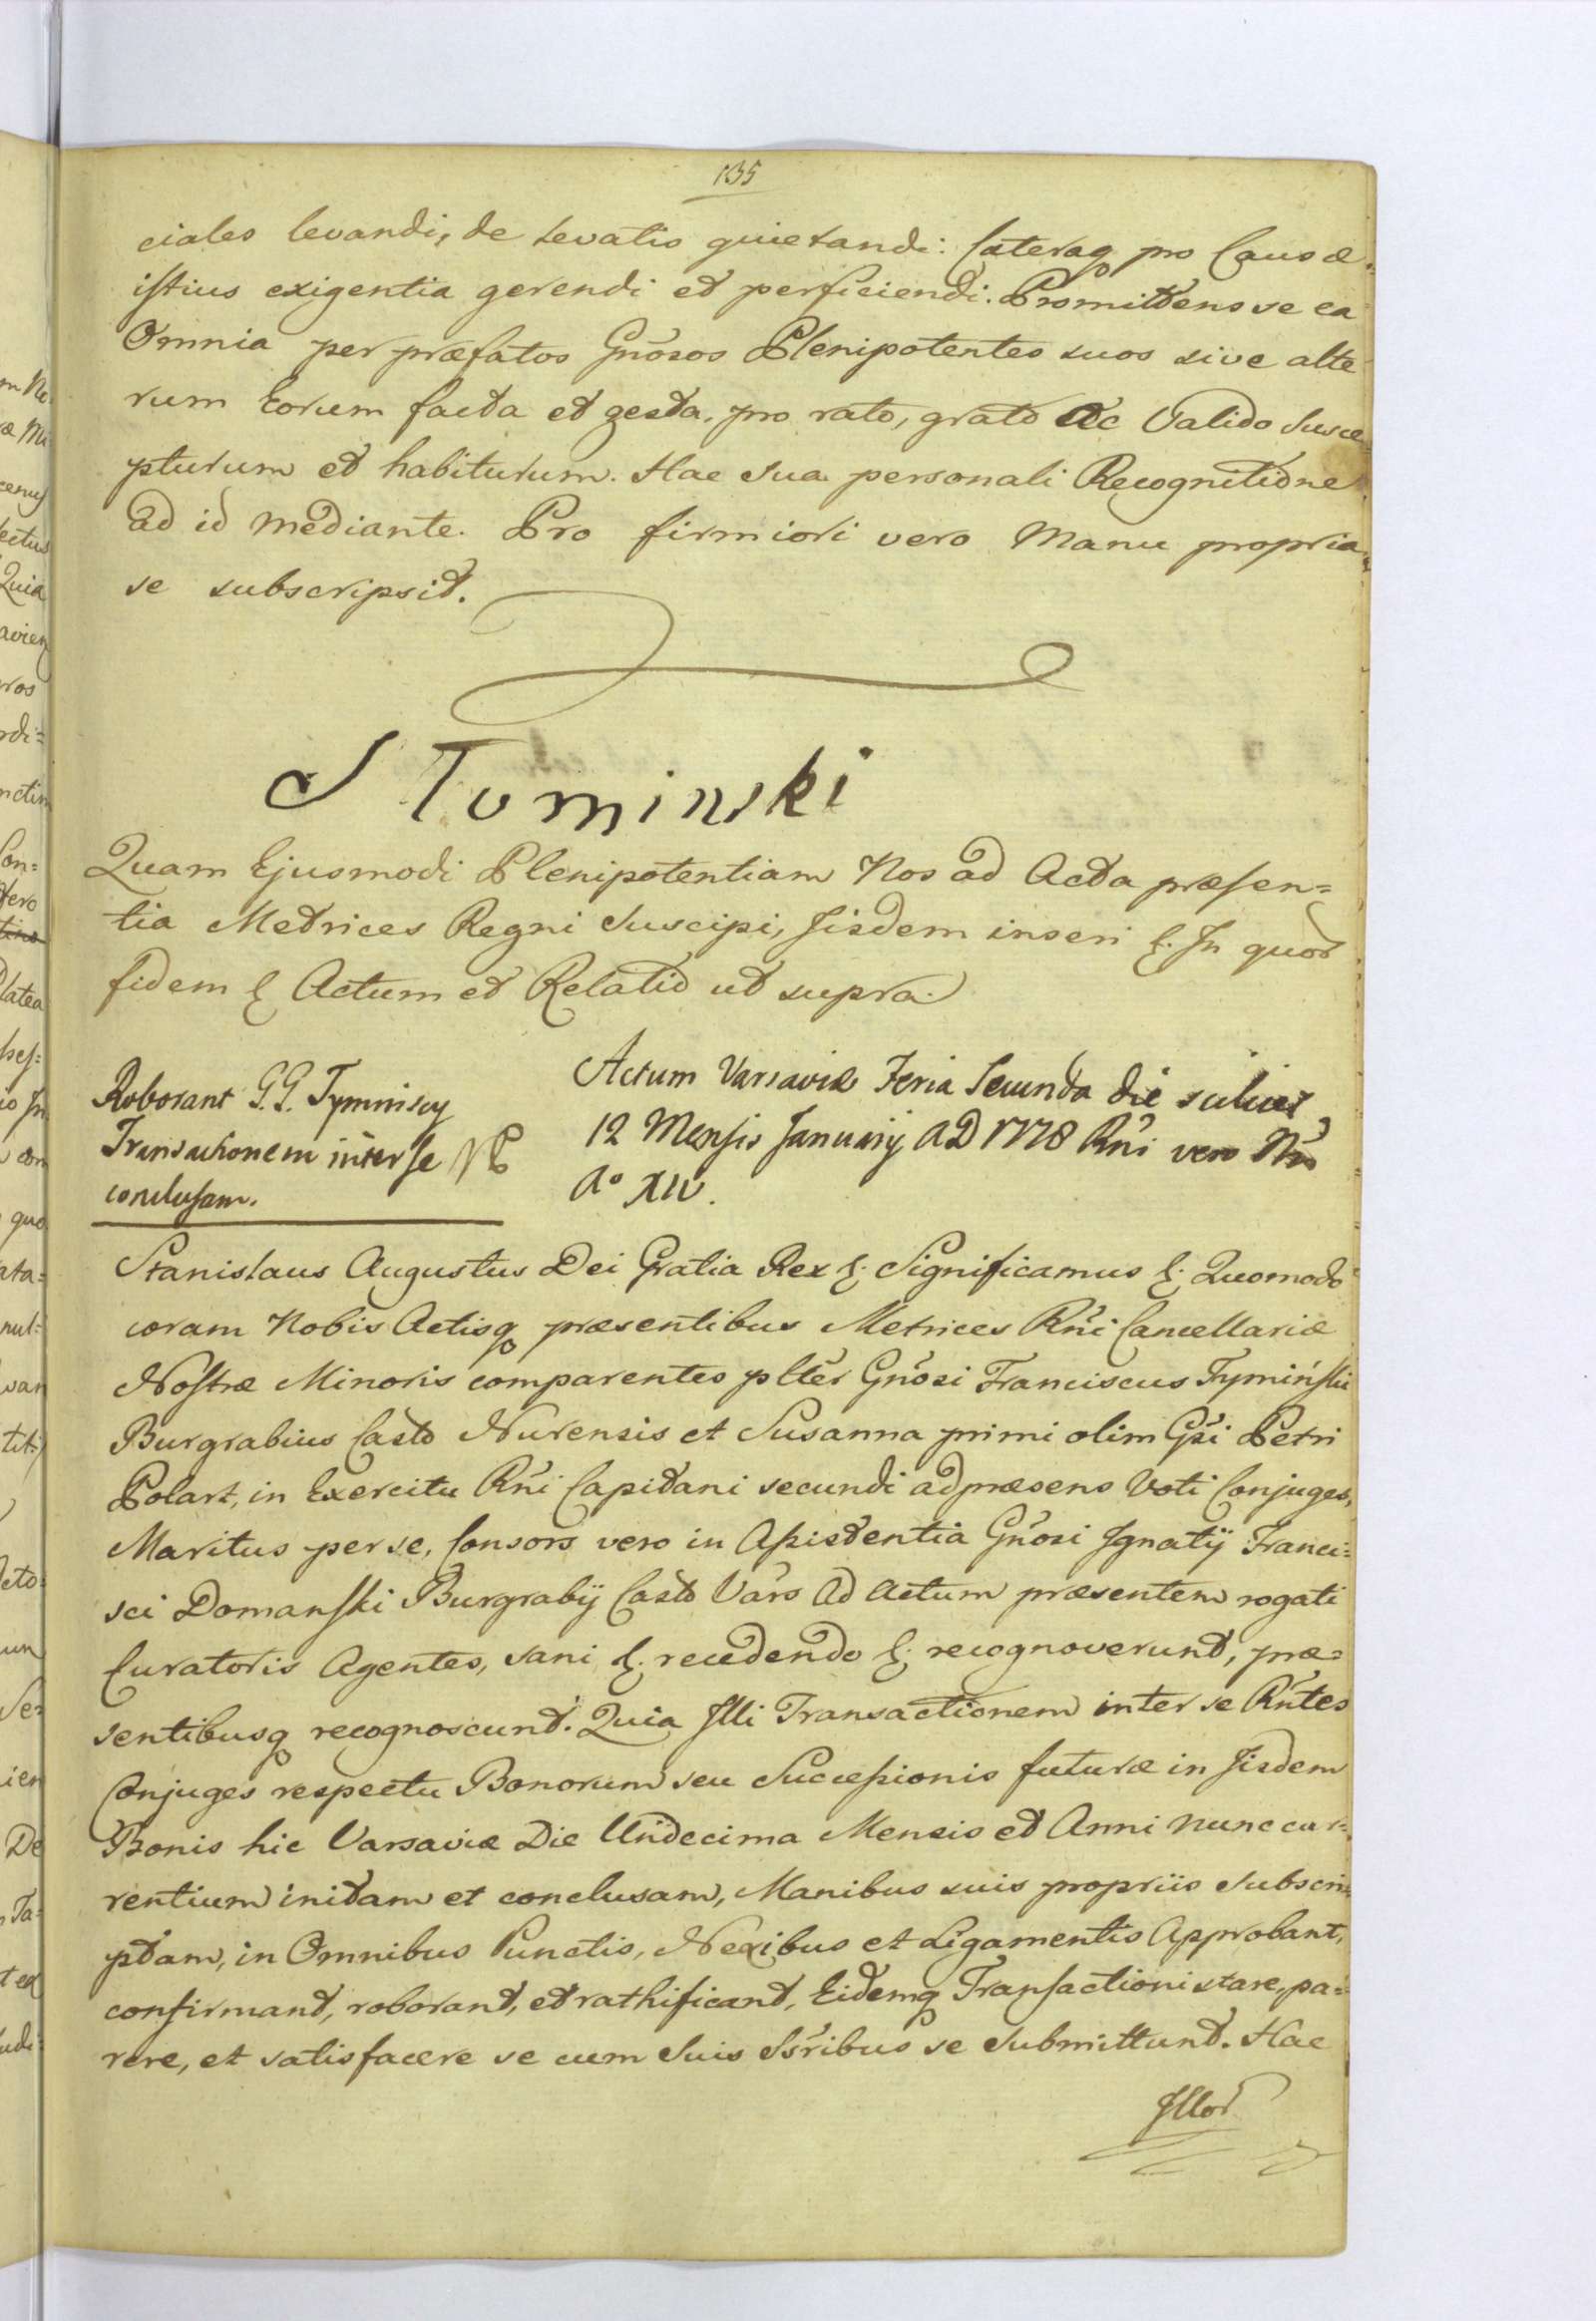 135
ciales levandi, de levatis quietandi: Cæteraq pro Causæ
istius exigentia gerendi et perficiendi. Promittens se ea
Omnia per præfatos Gnosos Plenipotentes suos sive alte
rum Eorum facta et gesta, pro rato, grato ac Valido Susce
pturum et habiturum. Hac sua personali Recognitione
ad id mediante. Pro firmiori vero Manu propria
se subscripsit.
S Tuminski
Quam Ejusmodi Plenipotentiam Nos ad Acta præsen=
tia Metrices Regni Suscipi, Iisdem inseri &. In quor
fidem & Actum et Relatio ut supra.
Roborant G.G. Tyminscy
Transactionem inter se
conclusam.
Actum Varsaviæ Feria Secunda die scilicet
12 Mensis Januarij AD 1778 Rńi vero Nri
Ao XIV.
Stanislaus Augustus Dei Gratia Rex &. Significamus &. Quomodo
coram Nobis Actisq præsentibus Metrices Rńi Cancellariæ
Nostræ Minoris comparentes plter Gnosi Franciscus Tymiński
Burgrabius Casto Nurensis et Susanna primi olim Gsi Petri
Polart, in Exercitu Rńi Capitani secundi ad præsens Voti Conjuges,
Maritus per se, Consors vero in Assistentia Gnosi Ignatij Franci=
sci Domanski Burgrabij Casto Vars ad actum præsentem rogati
Curatoris Agentes, sani &. recedendo &. recognoverunt, præ=
sentibusq recognoscunt. Quia Illi Transactionem inter se Rntes
Conjuges respectu Bonorum seu Successionis futuræ in Iisdem
Bonis hic Varsaviæ Die Undecima Mensis et Anni nunc cur=
rentium initam et conclusam, Manibus suis propriis Subscri=
ptam, in Omnibus Punctis, Nexibus et Ligamentis Approbant,
confirmant, roborant, et rathificant, Eidemq Transactioni stare, pa=
rere, et satisfacere se cum Suis Ssribus se Submittunt. Hac
Illor